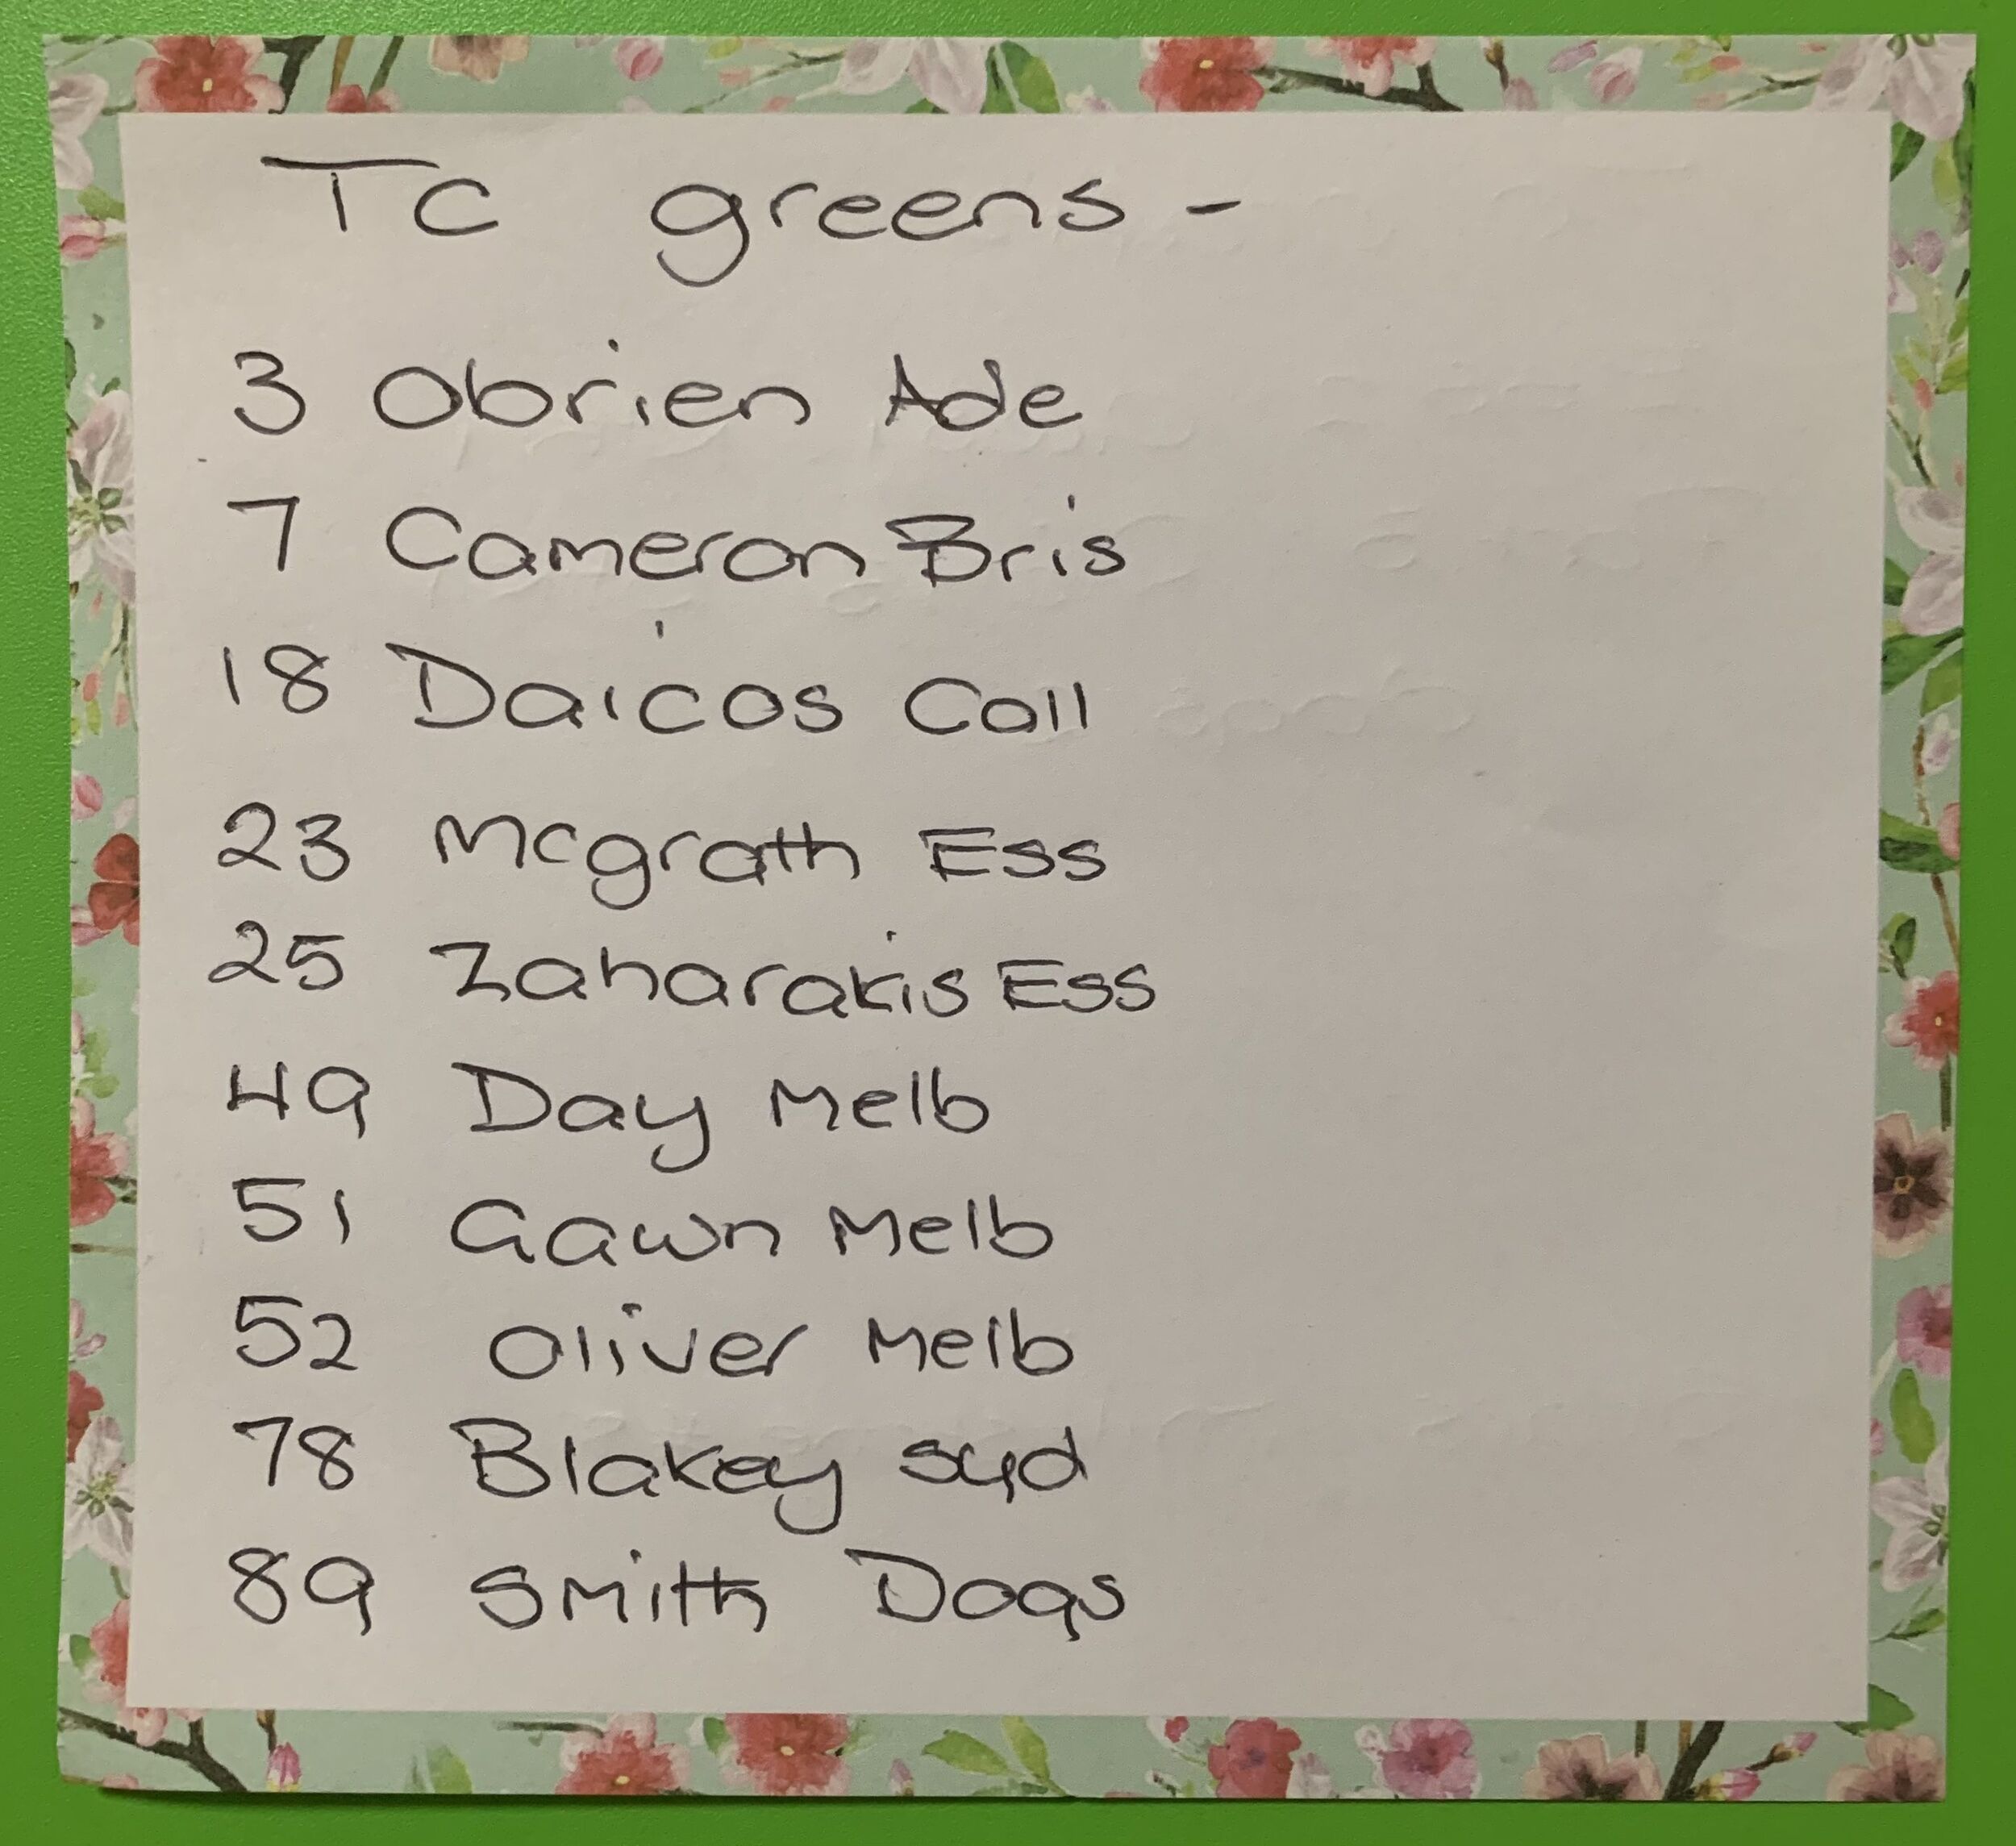 TC greens -
3 Obrien Ade
7 Cameron Bris
18 Daicos Coll
23 Mcgrath Ess
25 Zaharakis Ess
49 Day Melb
51 Gawn Melb
52 Oliver Melb
78 Blakey Syd
89 Smith Dogs